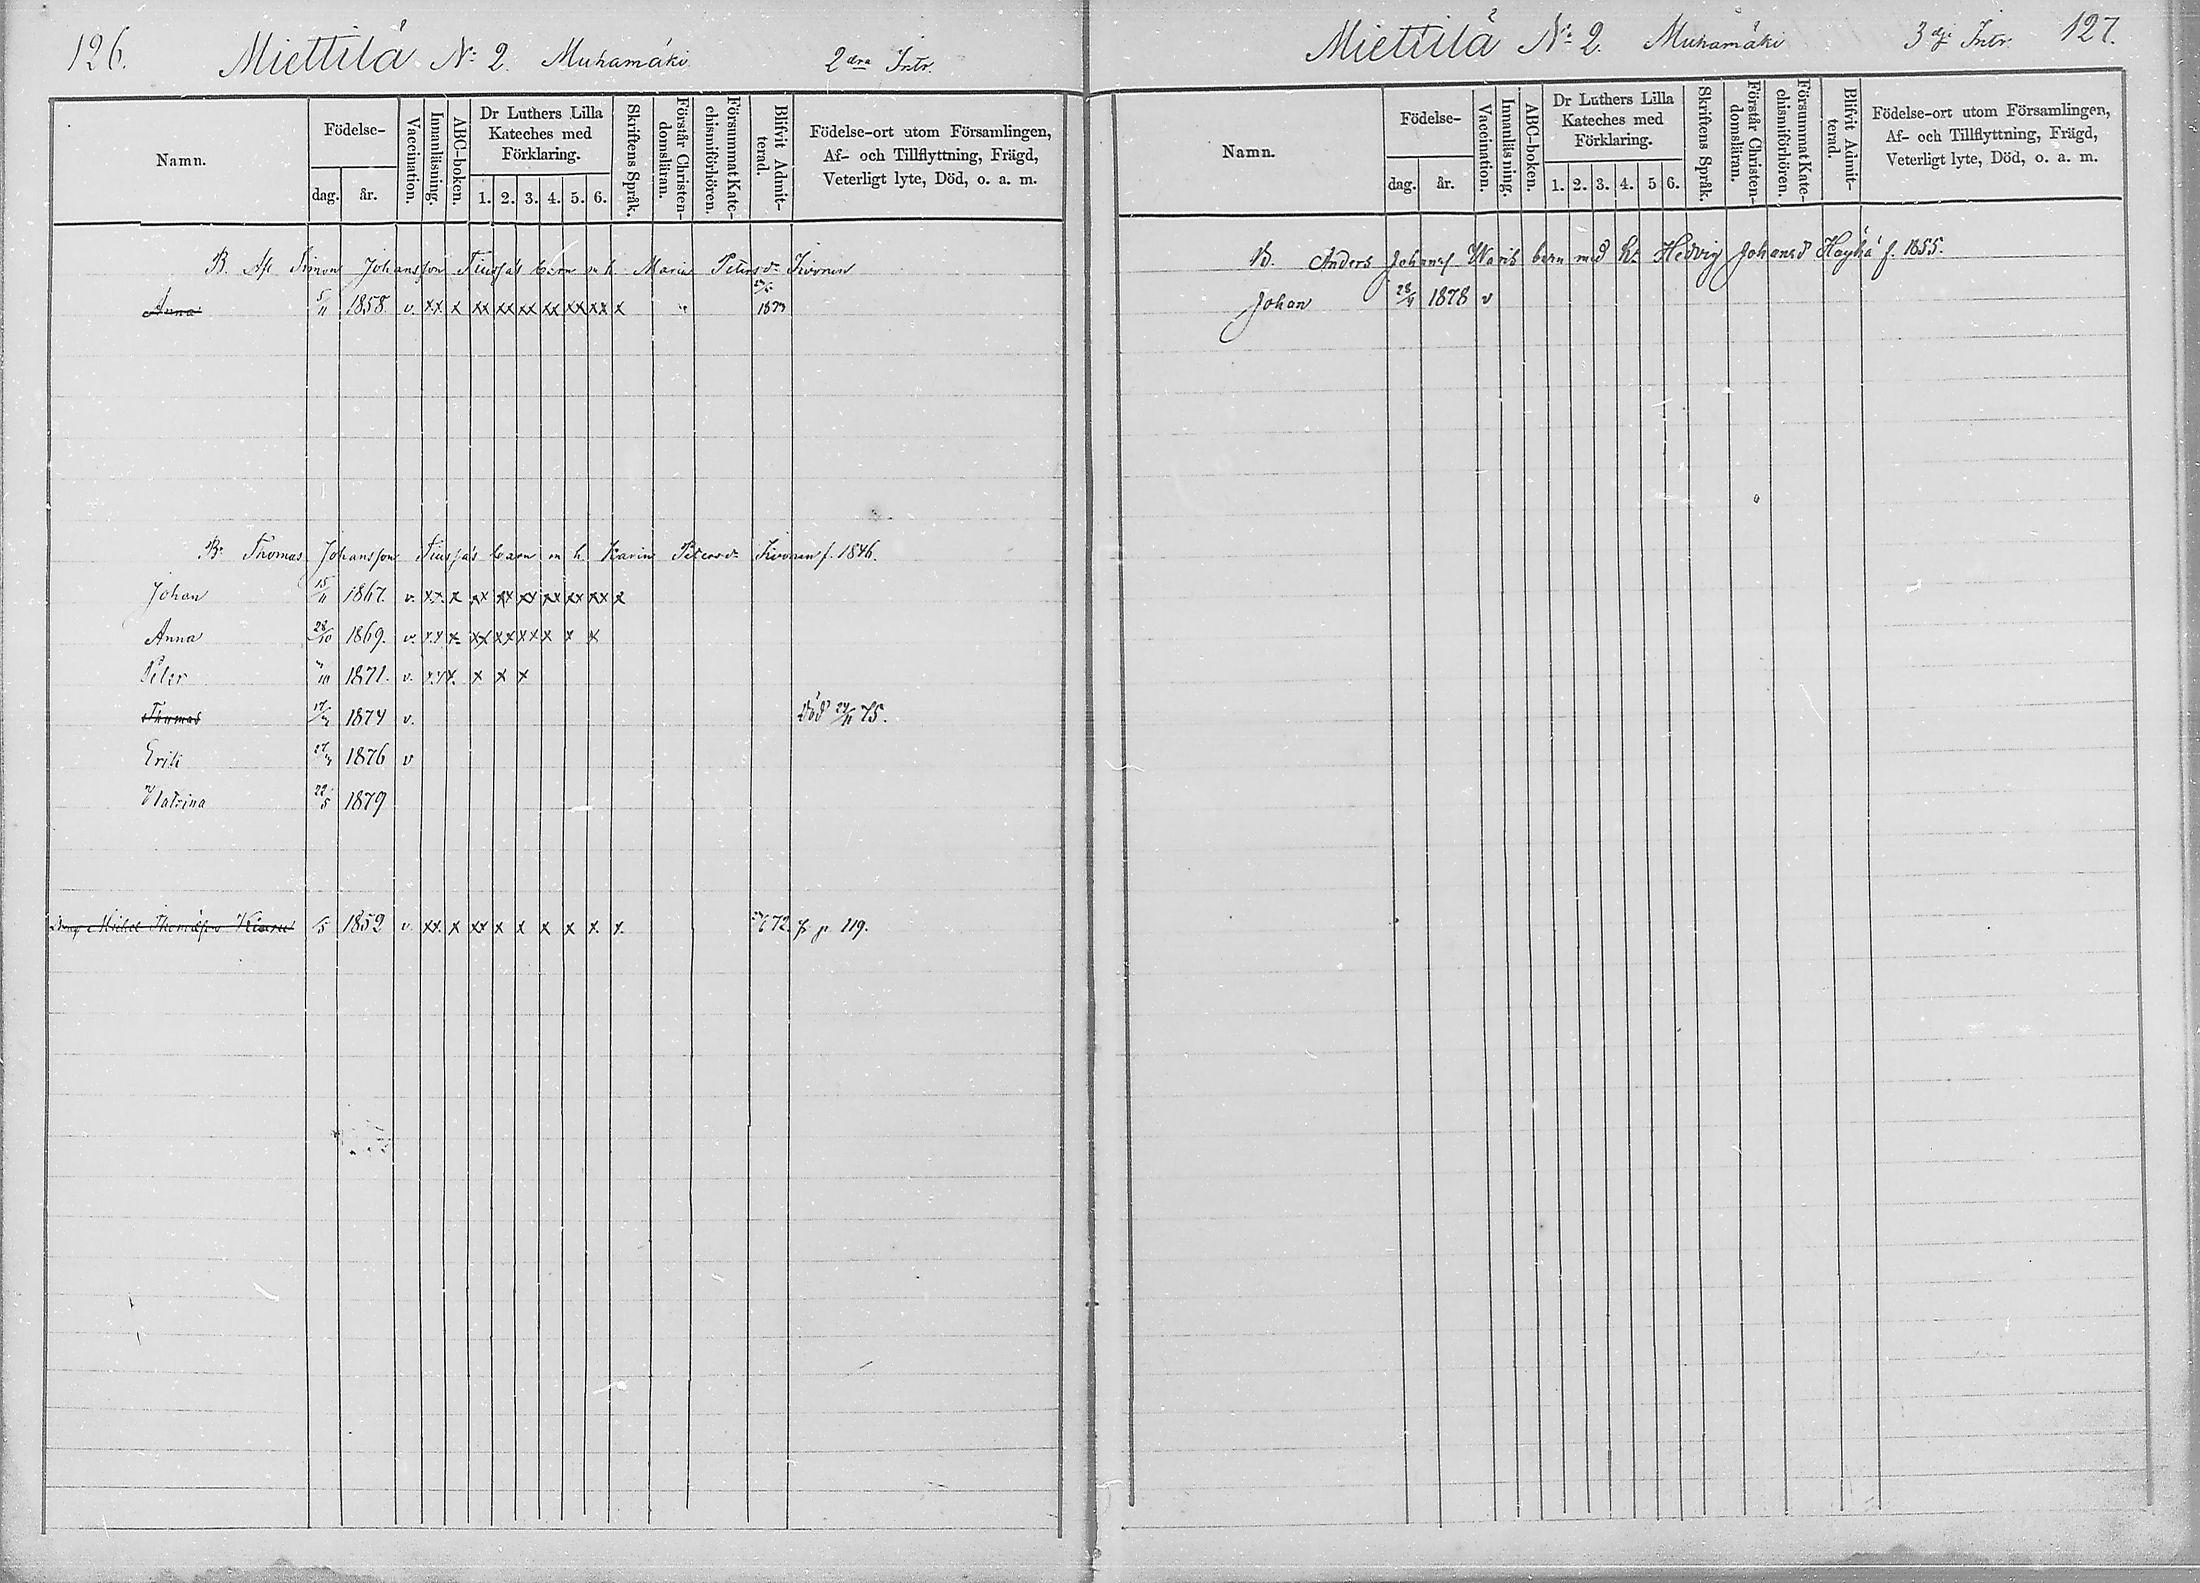 126. Miettilä No 2. Muhamäki 2dra Intr.
Namn.
Födelse-
dag.
år.
Vaccination.
Innanläsning.
ABC-boken.
Dr Luthers Lilla
Kateches med
Förklaring.
1. 2. 3. 4. 5. 6.
Skriftens Språk.
Förstår Christen-
domsläran.
Försummat Kate-
chismiförhören.
Blifvit Admit-
terad.
Födelse-ort utom Församlingen,
Af- och Tillflyttning, Frägd,
Veterligt lyte, Död, o. a. m.
B. Simon Johansson barn m h. Maria Petersdr
Anna 5/11 1858 v. xx x xx xx xx xx xx xx x " 1873
Thomas Johansson barn m h. Karin Petersdr f. 1846.
Johan 15/11 1867. v. xx x xx xx xx xx xx xx x
Anna 28/10 1869. v. xx x xx xx xx x x x
Peter 1871. v. xx x. x x x
Thomas 1874 v. Död 24/11 75.
Erik 1876 v
Katrina 22/5 1879
Michel 1852 v. xx. x xx x x x x x. x. 72. p 119.
Miettilä No 2. Muhamäki 3dje Intr. 127.
Namn.
Födelse-
dag.
år.
Vaccination.
Innanläsning.
ABC-boken.
Dr Luthers Lilla
Kateches med
Förklaring.
1. 2. 3. 4. 5 6.
Skriftens Språk.
Förstår Christen-
domsläran.
Försummat Kate-
chismiförhören.
Blifvit Admit-
terad.
Födelse-ort utom Församlingen,
Af- och Tillflyttning, Frägd,
Veterligt lyte, Död, o. a. m.
B. Anders Johans Waris barn med h. Hedvig Johansd Häyhä f. 1855.
Johan 1878 v